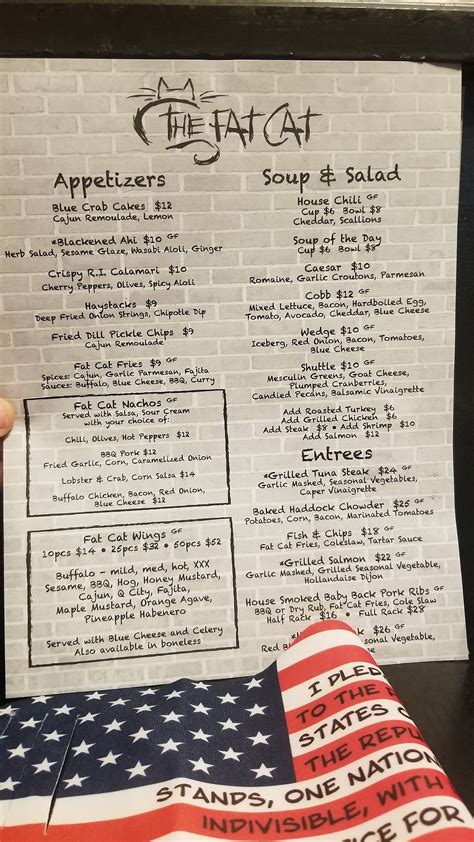 THE FAT CAT
Appetizers
Blue Crab Cakes $12
Cajun Remoulade, Lemon
*Blackened Ahi $10 GF
Herb Salad, Sesame Glaze, Wasabi Aioli, Ginger
Crispy R.I. Calamari $10
Cherry Peppers, Olives, Spicy Aioli
Haystacks $9
Deep Fried Onion Strings, Chipotle Dip
Fried Dill Pickle Chips $9
Cajun Remoulade
Fat Cat Fries $9 GF
Spices: Cajun, Garlic Parmesan, Fajita
Sauces: Buffalo, Blue Cheese, BBQ, Curry
Fat Cat Nachos GF
Served with Salsa, Sour Cream
with your choice of:
Chili, Olives, Hot Peppers $12
BBQ Pork $12
Fried Garlic, Corn, Caramelized Onion
Lobster & Crab, Corn Salsa $14
Buffalo Chicken, Bacon, Red Onion,
Blue Cheese $12
Fat Cat Wings GF
10pcs $14 • 25pcs $32 • 50pcs $52
Buffalo - mild, med, hot, XXX
Sesame, BBQ, Hog, Honey Mustard,
Cajun, Q City, Fajita,
Maple Mustard, Orange Agave,
Pineapple Habenero
Served with Blue Cheese and Celery
Also available in boneless
Soup & Salad
House Chili GF
Cup $6 Bowl $8
Cheddar, Scallions
Soup of the Day
Cup $6 Bowl $8
Caesar $10
Romaine, Garlic Croutons, Parmesan
Cobb $12 GF
Mixed Lettuce, Bacon, Hardboiled Egg,
Tomato, Avocado, Cheddar, Blue Cheese
Wedge $10 GF
Iceberg, Red Onion, Bacon, Tomatoes,
Blue Cheese
Shuttle $10 GF
Mesculin Greens, Goat Cheese,
Plumped Cranberries,
Candied Pecans, Balsamic Vinaigrette
Add Roasted Turkey $6
Add Grilled Chicken $6
Add Steak $8 • Add Shrimp $10
Add Salmon $12
Entrees
*Grilled Tuna Steak $24 GF
Garlic Mashed, Seasonal Vegetables,
Caper Vinaigrette
Baked Haddock Chowder $25 GF
Potatoes, Corn, Bacon, Marinated Tomatoes
Fish & Chips $18 GF
Fat Cat Fries, Coleslaw, Tartar Sauce
*Grilled Salmon $22 GF
Garlic Mashed, Grilled Seasonal Vegetable,
Hollandaise Dijon
House Smoked Baby Back Pork Ribs GF
BBQ or Dry Rub, Fat Cat Fries, Cole Slaw
Half Rack $16 • Full Rack $28
$26 GF
Red
Vegetable,
I PLED
TO THE
STATES
THE REPU
STANDS, ONE NATION
INDIVISIBLE, WITH
FOR